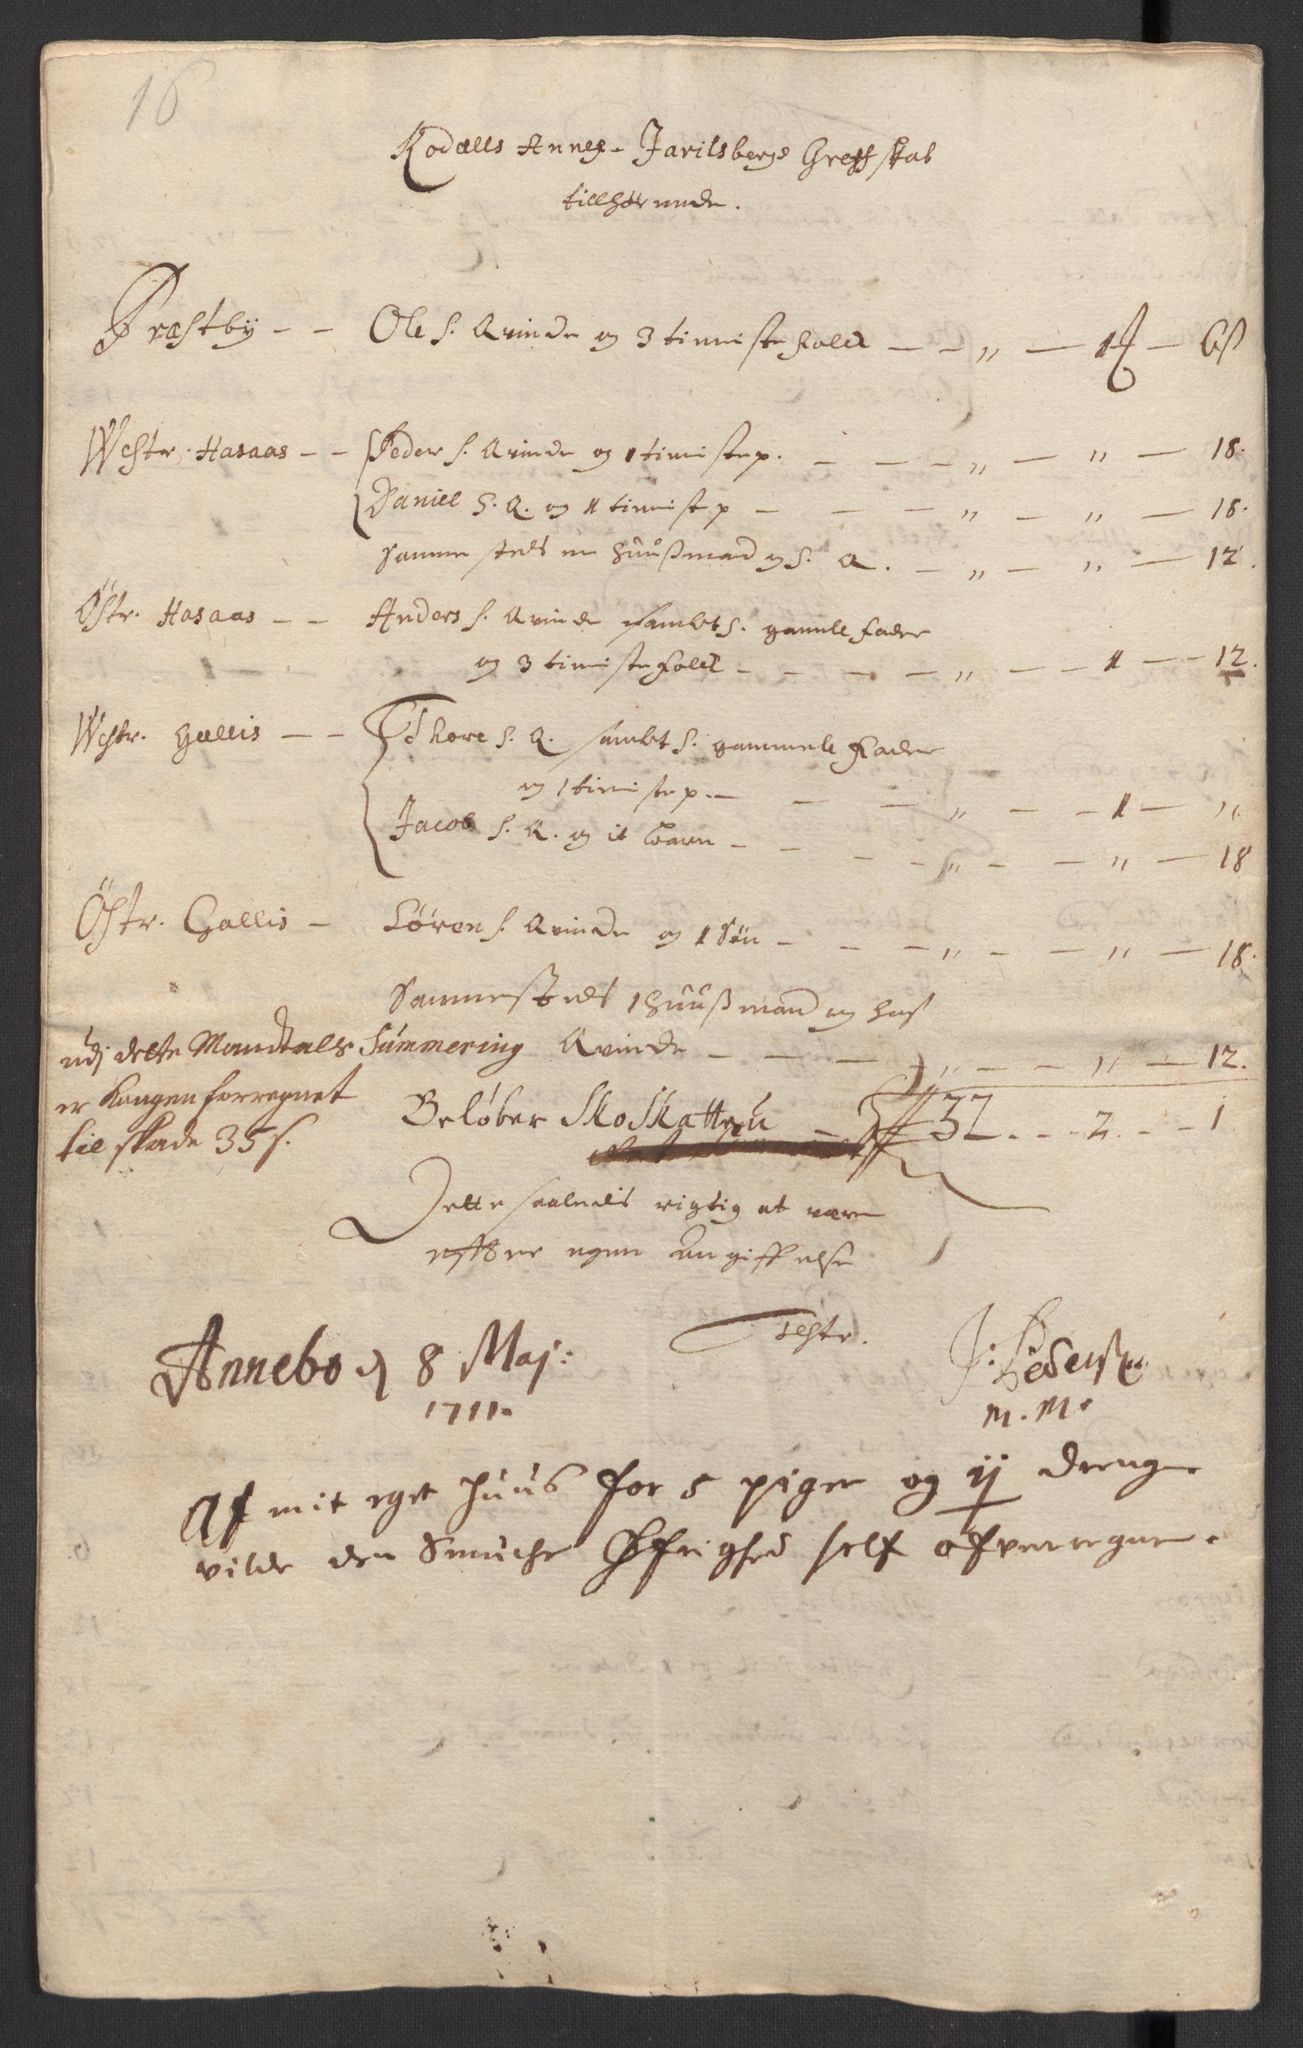 16
Kodalls Annex Jarilsbergs Greffskab
tillhørende.
Præstby - - Ole s. Qvinde og 3 tienniste Folck - - „ - 1 - 6 ß
Westr. Hasaas - - Peder s. Qvinde og 1 tienistep. - - - „ - „ - 18.
Daniel s. Q. og 1 tienistep - - - - „ - „ - 18.
Samme steds en Huußmand og s. Q. - „ - „ - 12.
Östr. Hasaas - - Anders s. Qvinde sambt s. gamle Fader
og 3 tieniste Folck - - - - „ - - 1 - - 12.
Westr. Gallis - - Thore s. Q. sambt s. gammele Fader
og 1 tienistep. - - - - „ - - 1 - „
Jacob s. Q. og it Barn - - - - „ - - „ - 18
Östr. Gallis - Sören s. Qvinde og 1 Sön - - - - „ - - „ - 18.
Sammesteds 1 Huußmand og hans
Qvinde - - - „ - - „ - 12.
udj dette Mandtals Summering
er Kongen forregnet
til skade 35 s.
Beløber SkoSkatten - 32 - - 2 - - 1
Dette saaledis rigtig at være
effter egen Angiffvelse
Testr.
Annebo d 8 Maj:
1711.
J: Pedersen
M. M.
Af mit eget Huus for 5 piger og ij drenge
vilde den Øfrighed self afregne.